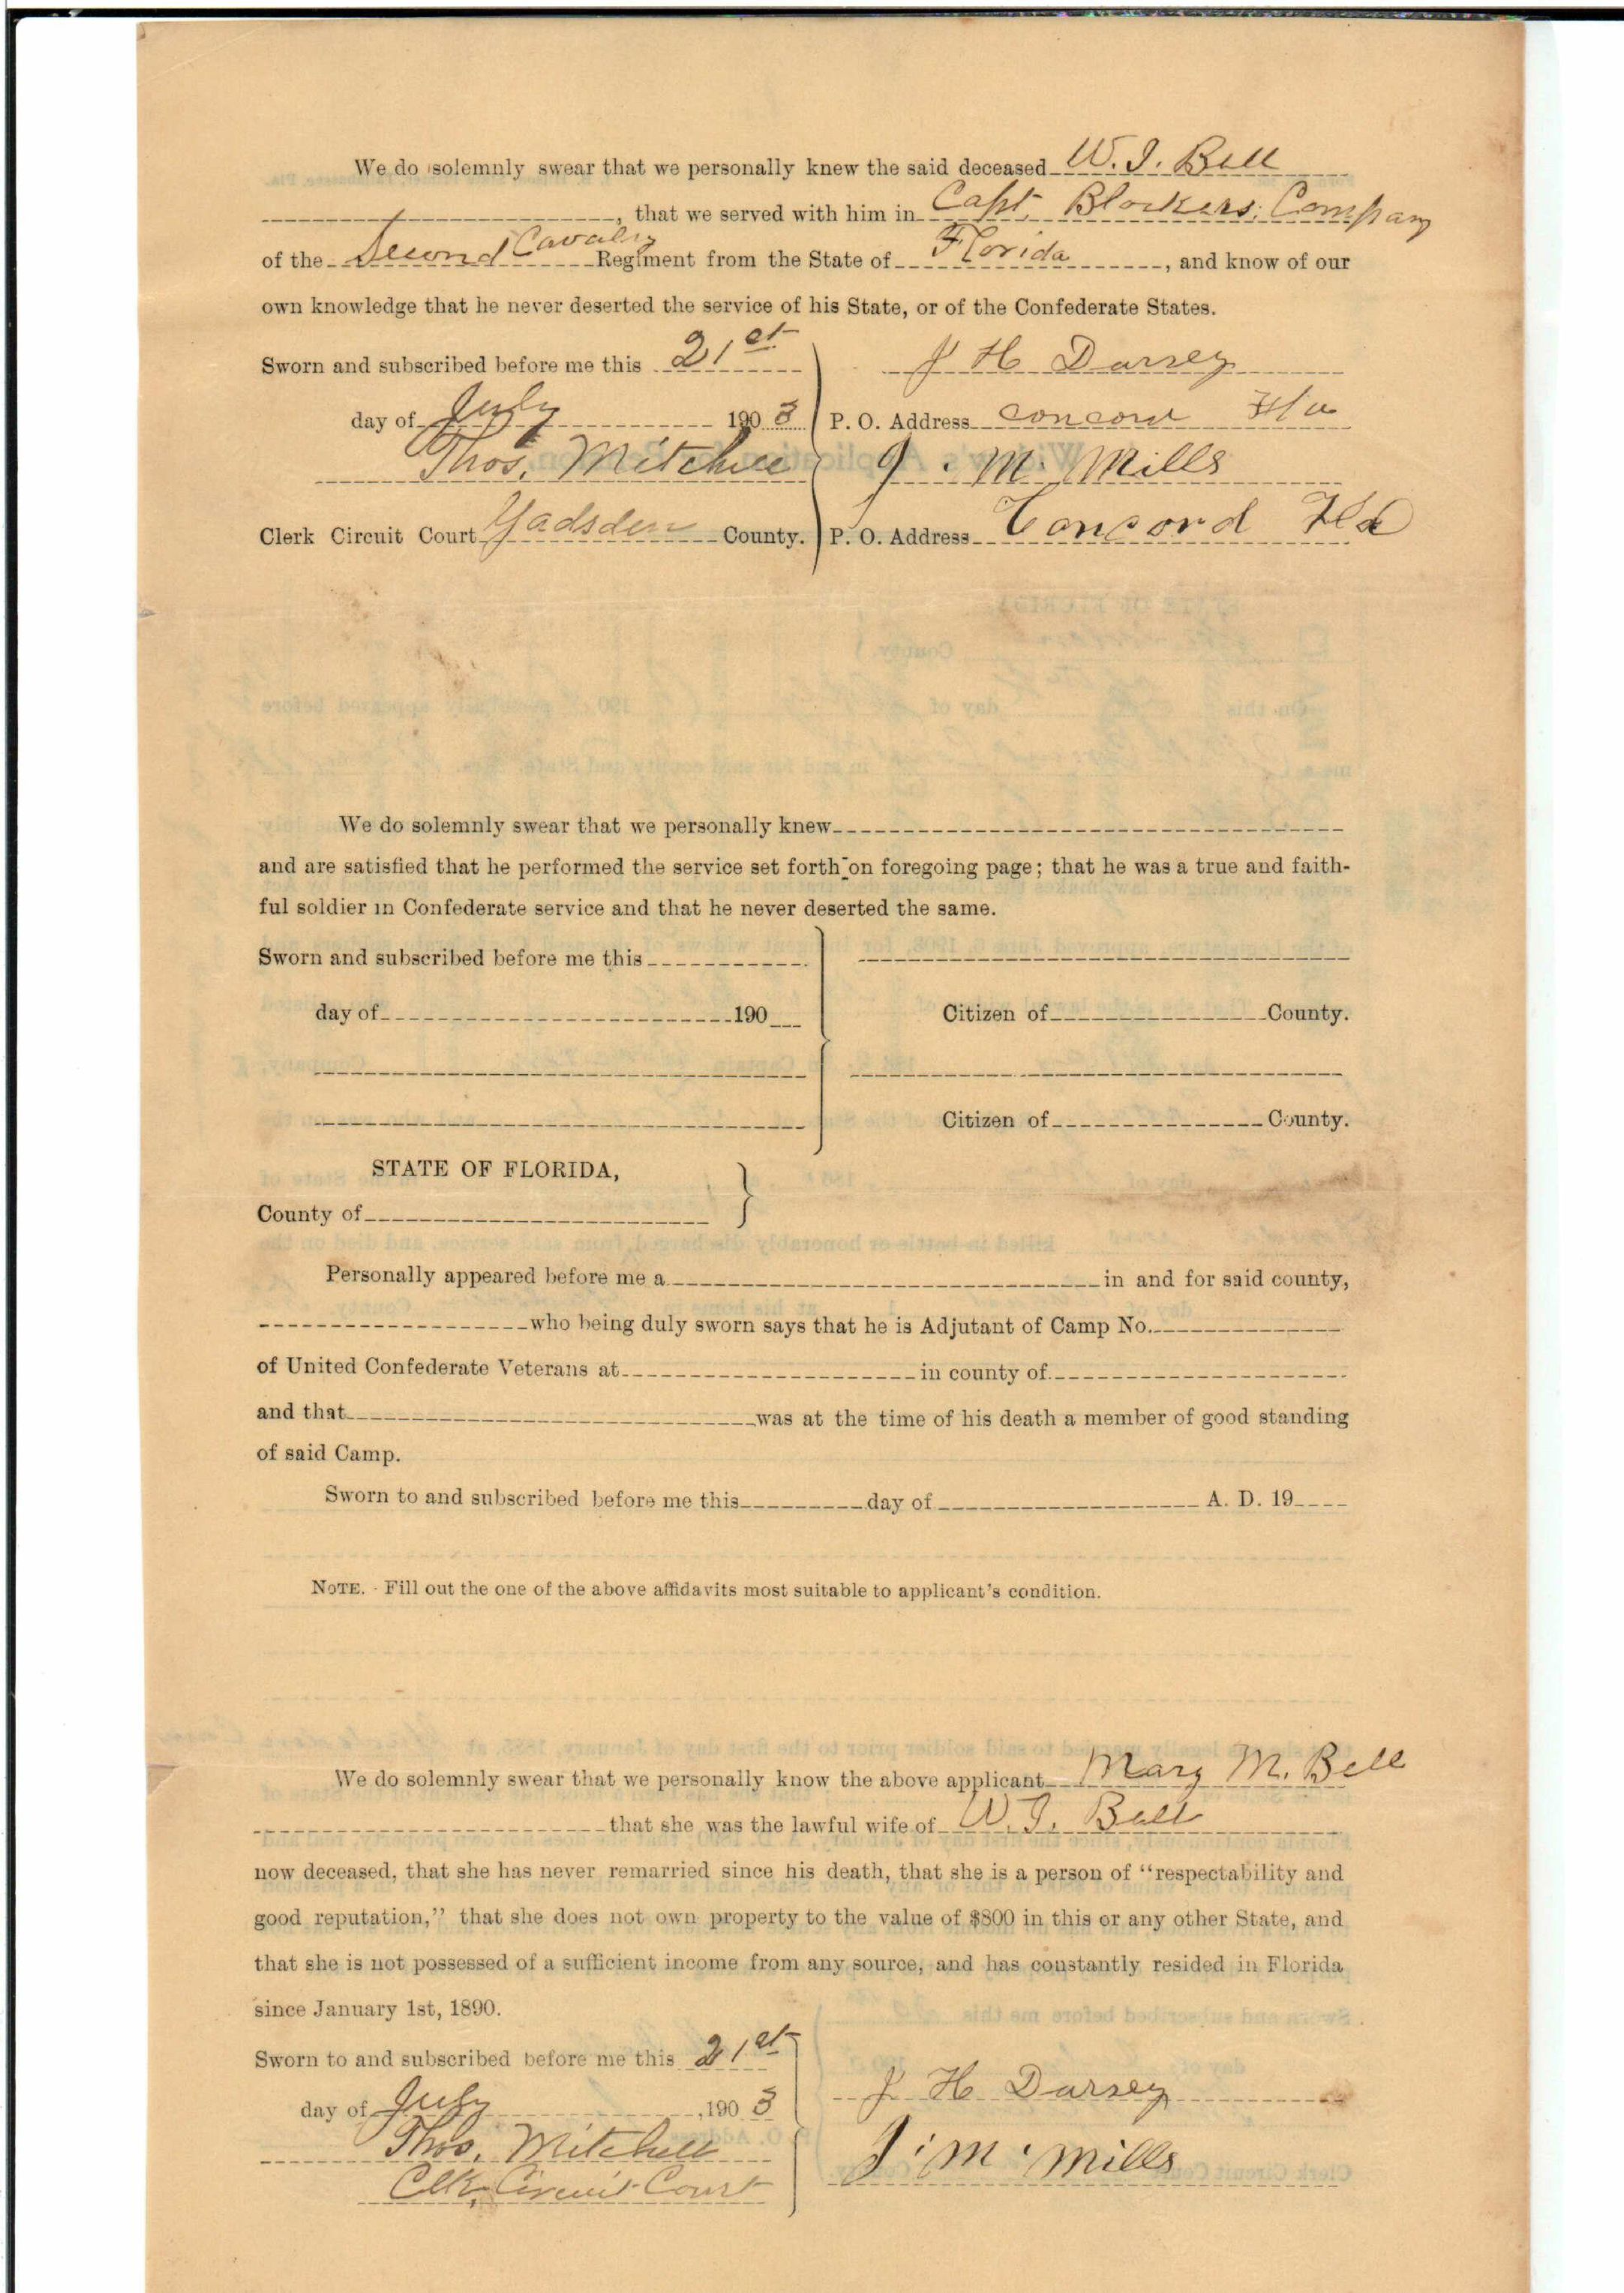 We do solemnly swear that we personally knew the said deceased W. J. Bell
, that we served with him in Capt. Blockers Company
of the Second Cavalry Regiment from the State of Florida, and know of our
own knowledge that he never deserted the service of his State, or of the Confederate States.
Sworn and subscribed before me this 21st
J H Darsey
day of July 1903
P. O. Address Concord Fla
Thos. Mitchell
J. M. Mills
Clerk Circuit Court Gadsden County.
P. O. Address Concord Fla
We do solemnly swear that we personally knew
and are satisfied that he performed the service set forth on foregoing page; that he was a true and faith-
ful soldier in Confederate service and that he never deserted the same.
Sworn and subscribed before me this
day of 190
Citizen of County.
Citizen of County.
STATE OF FLORIDA,
County of
Personally appeared before me a in and for said county,
who being duly sworn says that he is Adjutant of Camp No.
of United Confederate Veterans at in county of
and that was at the time of his death a member of good standing
of said Camp.
Sworn to and subscribed before me this day of A. D. 19
NOTE. - Fill out the one of the above affidavits most suitable to applicant's condition.
We do solemnly swear that we personally know the above applicant Mary M. Bell
that she was the lawful wife of W. J. Bell
now deceased, that she has never remarried since his death, that she is a person of "respectability and
good reputation," that she does not own property to the value of $800 in this or any other State, and
that she is not possessed of a sufficient income from any source, and has constantly resided in Florida
since January 1st, 1890.
Sworn to and subscribed before me this 21st
day of July, 1903
J H Darsey
Thos. Mitchell
J. M. Mills
Clk. Circuit Court